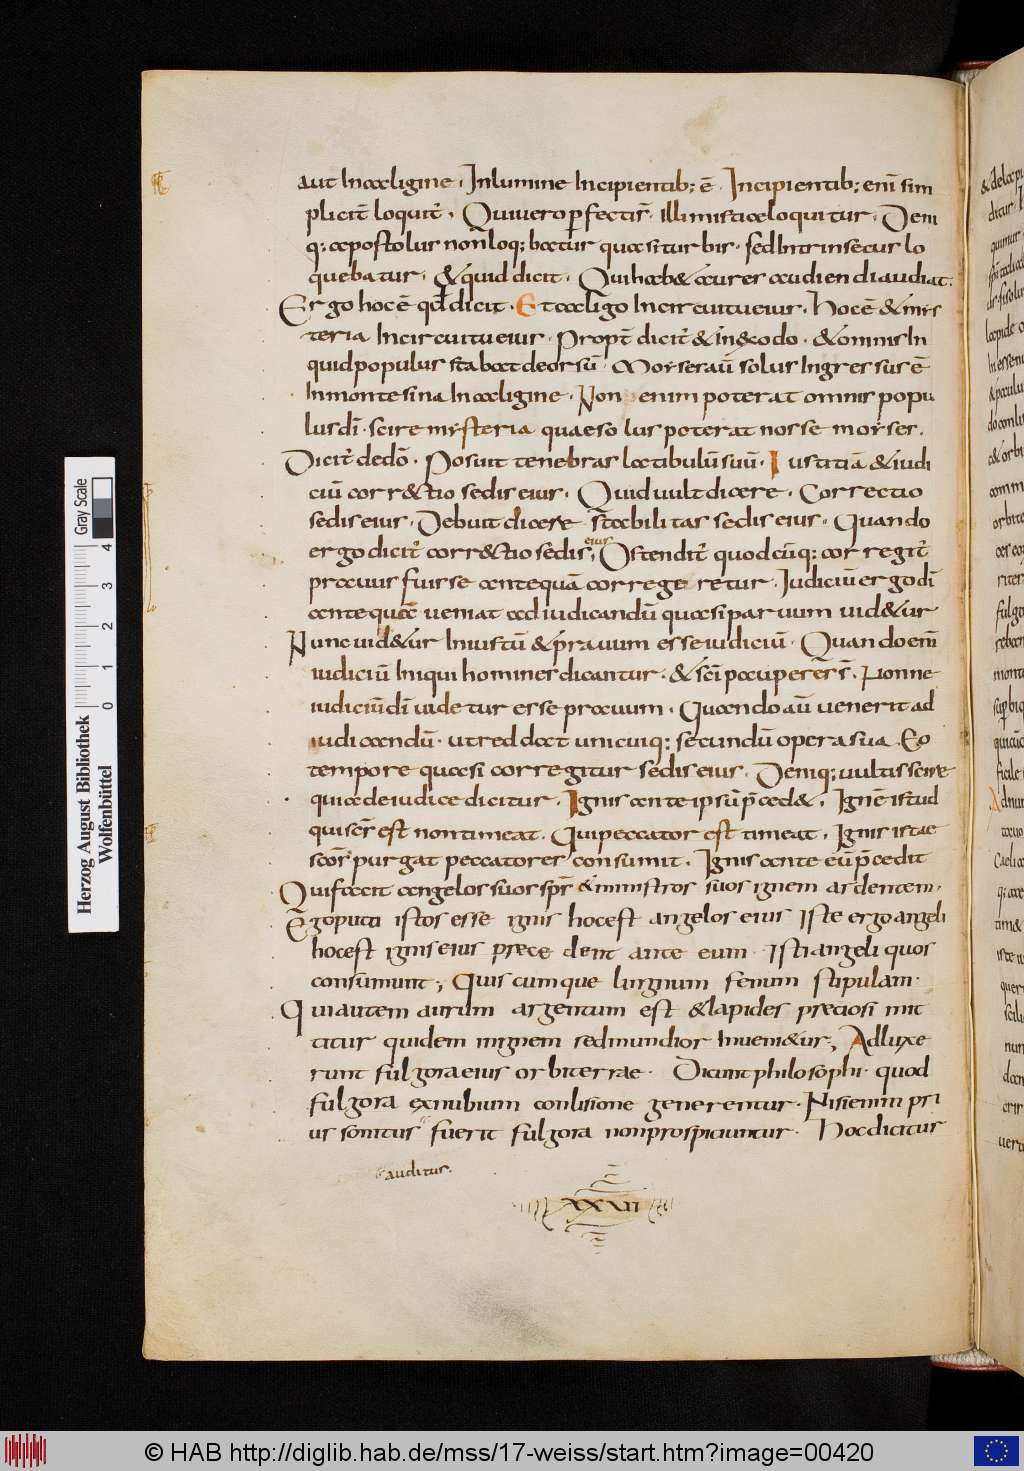 aut incaligine. Inlumine incipientib; ē. Incipientib; enī sim
plicit̄ loquit̄. Qui uero p̄fectis. illi mistica loquitur. Deni
q; apostolus non loq; batur quasi turbis. sed intrinsecus lo
quebatur. & quid dicit. Qui hab& aures audiendi audiat.
Ergo hoc ē qd̄ dicit. Et caligo in circuitu eius. Hoc ē & mys
teria in circuitu eius. Propt̄ dicit̄ & in exodo. & omnis in
quid populus stabat deorsū. Moyses aū solus ingressus ē
in monte sina in caligine. Non enim poterat omnis popu
lus dī. scire mysteria quae solus poterat nosse moyses.
Dicit̄ de dō. Posuit tenebras latibulū suū. Iustitiā & iudi
ciū corr&tio sedis eius. Quid uult dicere. Correctio
sedis eius. Debuit dicere stabilitas sedis eius. Quando
ergo dicit̄ corr&tio sedis eius, Ostendit̄ quodcūq; corregit̄
prauus fuisse antequā corregeretur. Iudiciū ergo dī
ante quā ueniat ad iudicandū quasi paruum uid&ur
Nunc uid&ur iniustū & prauum esse iudiciū. Quando enī
iudiciū iniqui homines dicantur. & scī pauperes s̄. Nonne
iudiciū dī uidetur esse prauum. Quando aū uenerit ad
iudicandū. ut reddat unicuiq; secundū opera sua. Eo
tempore quasi corregitur sedis eius. Deniq; uultis scire
quia de iudice dicitur. Ignis ante ipsū p̄ced&. Ignē istud
qui scs̄ est non timeat. Qui peccator est timeat. Ignis iste
scōs purgat peccatores consumit. Ignis ante eū p̄cedit
Qui facit angelos suos sps̄ & ministros suos ignem ardentem.
Ego puto istos esse ignis hoc est angelos eius Iste ergo angeli
hoc est ignis eius prece dent ante eum. Isti angeli quos
consumunt; Quis cumque lingnum fenum stipulam.
Qui autem aurum argentum est & lapides preciosi mit
titur quidem in ignem sed mundior inueni&ur; Adluxe
runt fulgora eius orbi terrae. Dicunt philosophi. quod
fulgora ex nubium conlisione generentur. Nisi enim pri
us sonitus fuerit fulgora non prospiciuntur. Hoc dicitur
auditus.
XXVII
Herzog August Bibliothek
Wolfenbüttel
0 1 2 3 4
Gray Scale
© HAB http://diglib.hab.de/mss/17-weiss/start.htm?image=00420